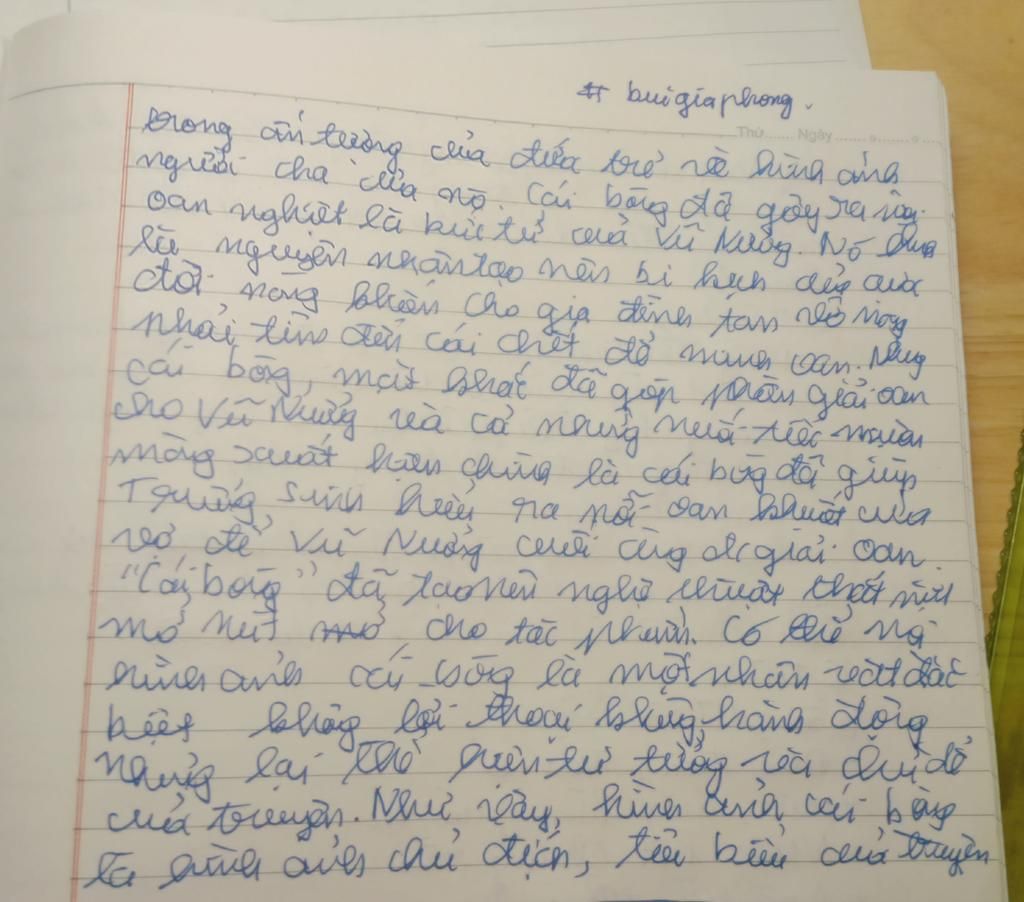 # buigiaphong.
Thứ...... Ngày.......
trong ấn tượng của đứa trẻ về hình ảnh
người cha của nó. Cái bóng đã gây ra nỗi
oan nghiệt là bức tử của Vũ Nương. Nó
là nguyên nhân tạo nên bi kịch của cuộc
đời nàng khiến cho gia đình tan vỡ nàng
phải tìm đến cái chết để minh oan. Nhưng
cái bóng, mặt khác đã góp phần giải oan
cho Vũ Nương và cả những nuối tiếc muộn
màng xuất hiện chính là cái bóng đã giúp
Trương Sinh hiểu ra nỗi oan khuất của
vợ để Vũ Nương cuối cùng đc giải oan.
"Cái bóng" đã tạo nên nghệ thuật thắt nút
mở nút cho tác phẩm. Có thể nói
hình ảnh cái bóng là một nhân vật đặc
biệt không lời thoại không hành động
nhưng lại thể hiện tư tưởng và chủ đề
của truyện. Như vậy, hình ảnh cái bóng
là hình ảnh chủ đích, tiêu biểu của truyện